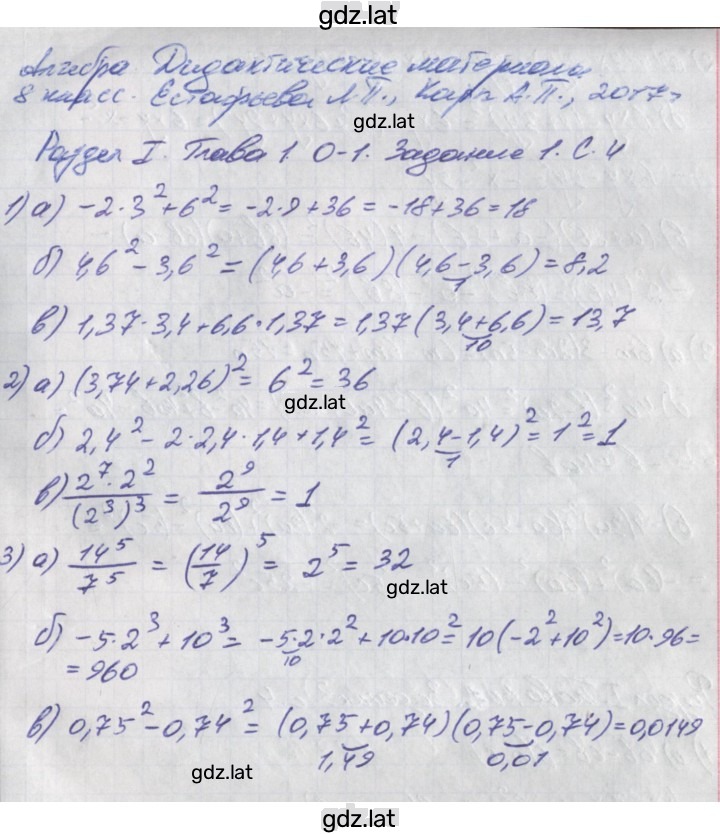 gdz.lat
Алгебра Дидактические материалы
8 класс. Евстафьева Л.П., Карп А.П., 2017г
gdz.lat
Раздел I. Глава 1. О-1. Задание 1. С. 4
1) а) -2·3² + 6² = -2·9 + 36 = -18 + 36 = 18
б) 4,6² - 3,6² = (4,6 + 3,6)(4,6 - 3,6) = 8,2
1
в) 1,37·3,4 + 6,6·1,37 = 1,37(3,4 + 6,6) = 13,7
10
2) а) (3,74 + 2,26)² = 6² = 36
gdz.lat
б) 2,4² - 2·2,4·1,4 + 1,4² = (2,4 - 1,4)² = 1² = 1
1
в) 2⁷·2²/(2³)³ = 2⁹/2⁹ = 1
3) а) 14⁵/7⁵ = (14/7)⁵ = 2⁵ = 32
gdz.lat
б) -5·2³ + 10³ = -5·2·2² + 10·10² = 10(-2² + 10²) = 10·96 =
10
= 960
в) 0,75² - 0,74² = (0,75 + 0,74)(0,75 - 0,74) = 0,0149
1,49 0,01
gdz.lat
gdz.lat